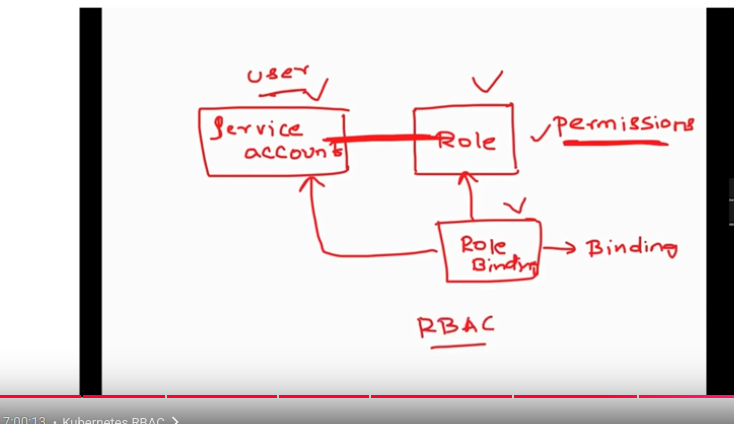 user
Service
account
Role
Permissions
Role
Binding
Binding
RBAC
7:00:13 • Kubernetes RBAC >